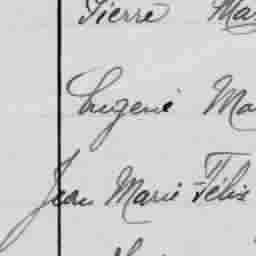 Pierre
Eugene
Jean Marie Félix